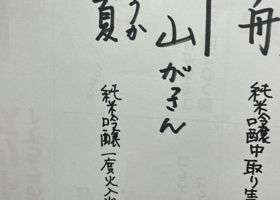 舟
純米吟醸中取り生
山がさん
夏
うか
純米吟醸一度火入